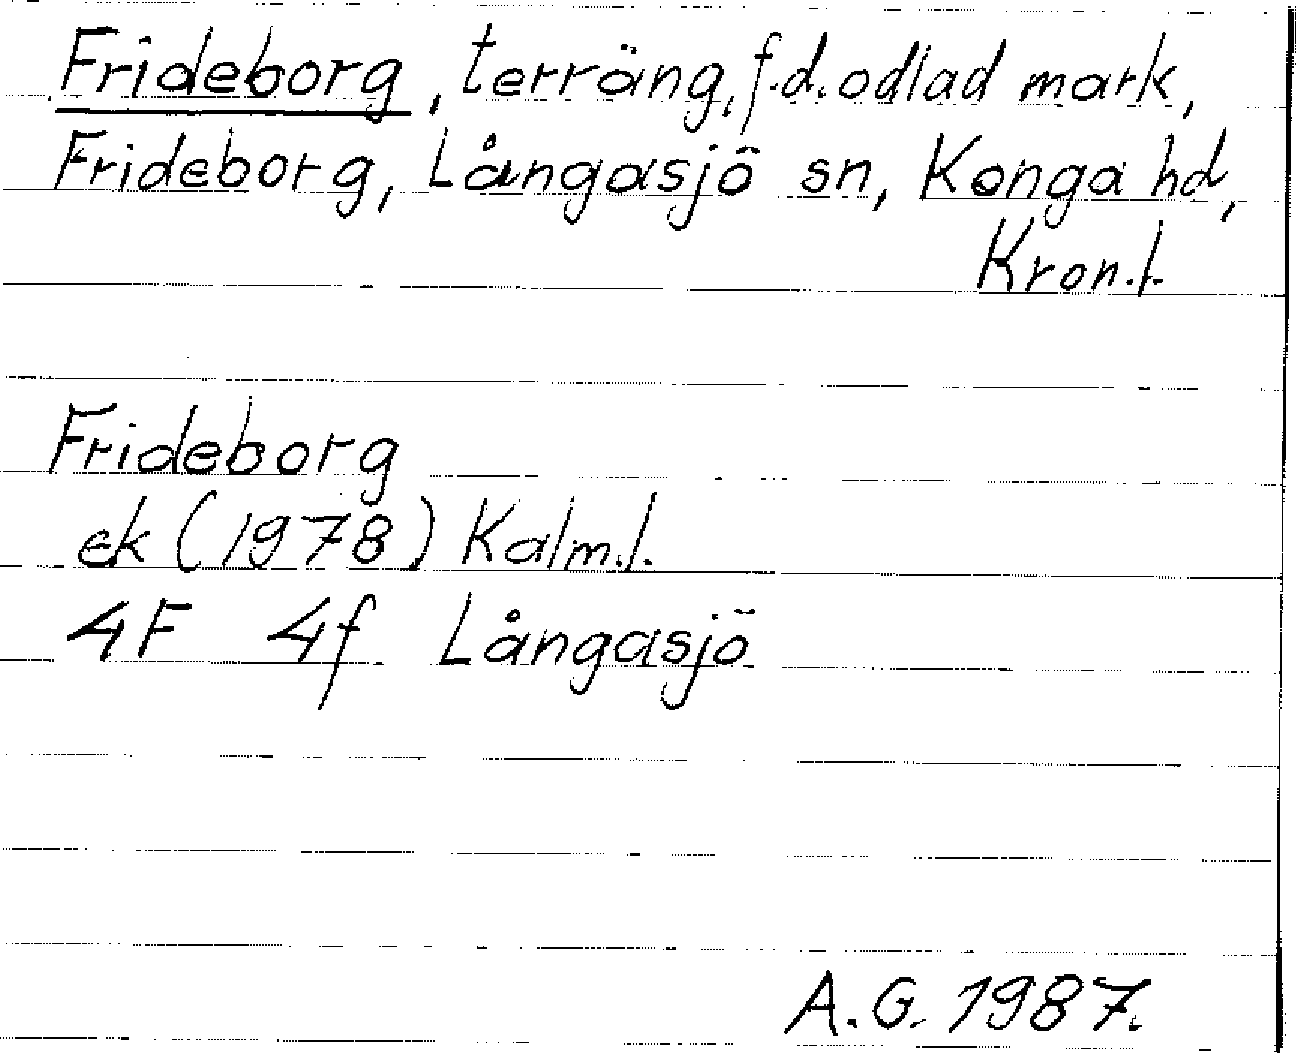 Frideborg, terräng, f.d. odlad mark,
Frideborg, Långasjö sn, Konga hd,
Kron.l.
Frideborg
ek (1978) Kalm.l.
4F 4f Långasjö
A.G. 1987.